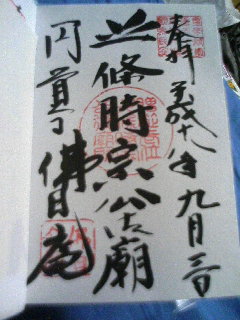 奉拝 平成十八年九月三日
北條時宗公御廟
円覚寺 佛日庵